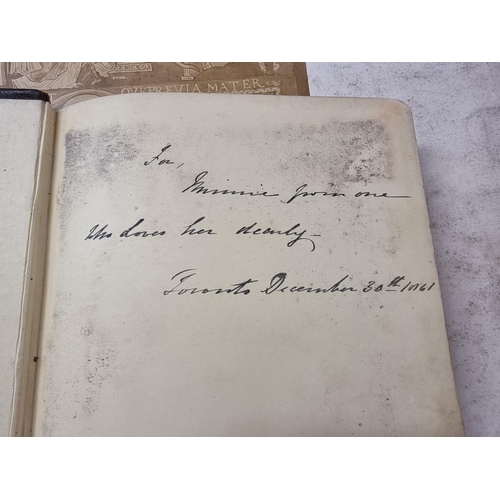 QVÆ PREVIA MATER
For,
Minnie from one
who loves her dearly
Toronto December 30th 1861